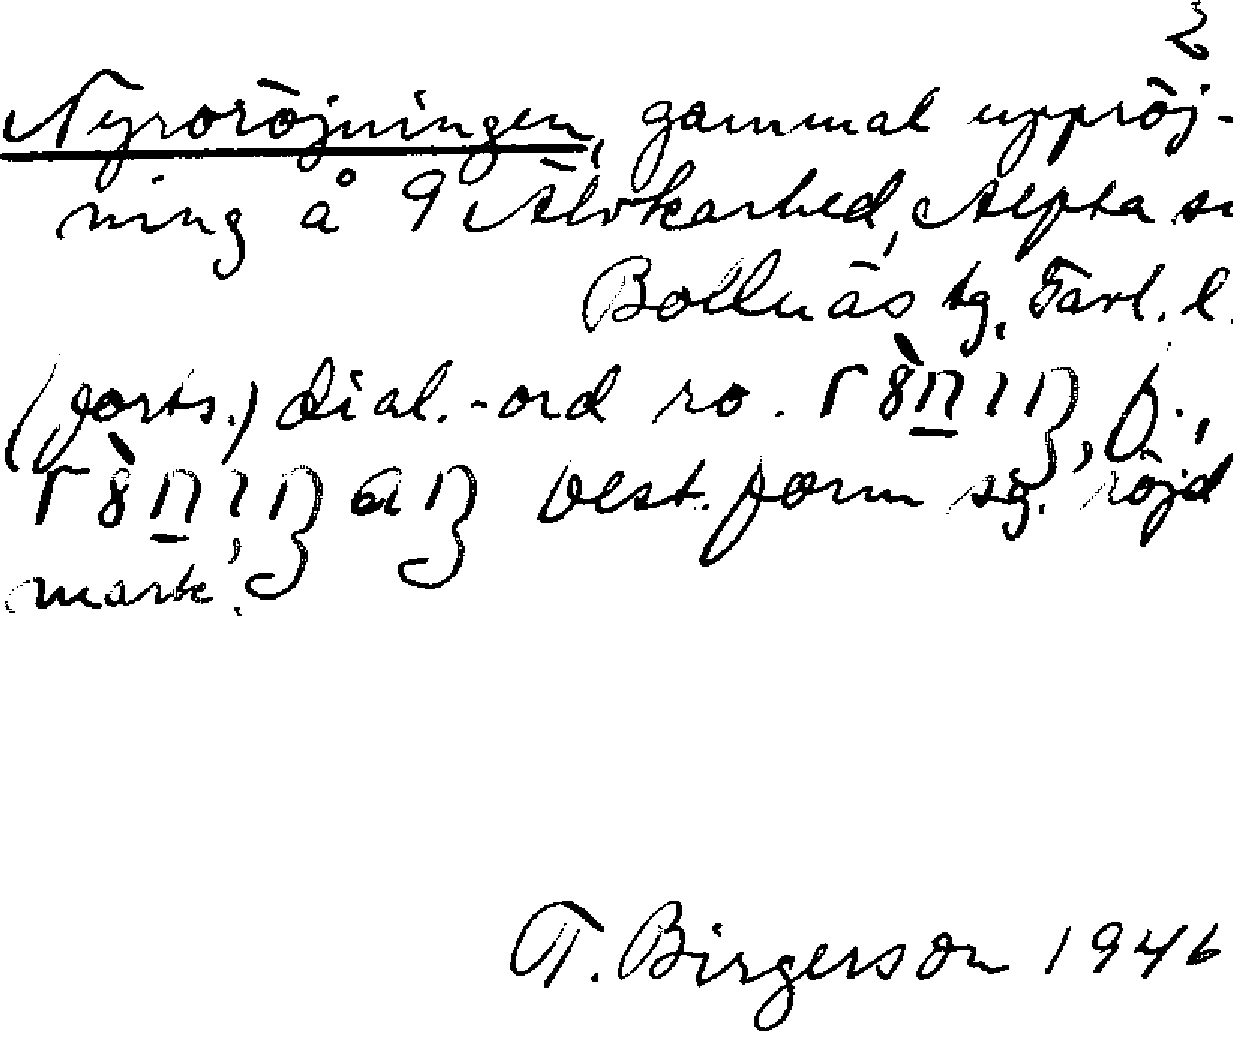 2
Nyroröjningen, gammal uppröj-
ning å 9 Älvkarhed, Alfta s
Bollnäs tg, Gävl. l.
(forts.) dial.-ord ro. f.,
best. form sg. röjd
mark.
T. Birgerson 1946